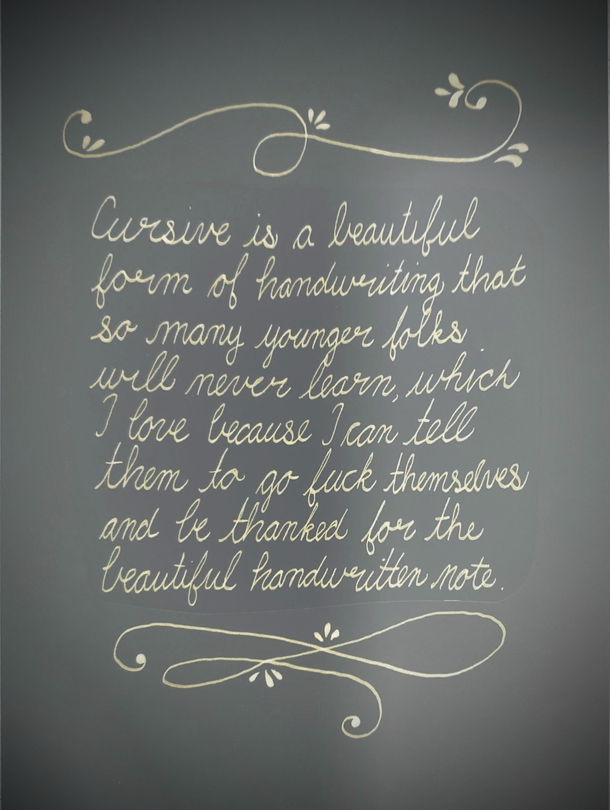 Cursive is a beautiful
form of handwriting that
so many younger folks
will never learn, which
I love because I can tell
them to go fuck themselves
and be thanked for the
beautiful handwritten note.